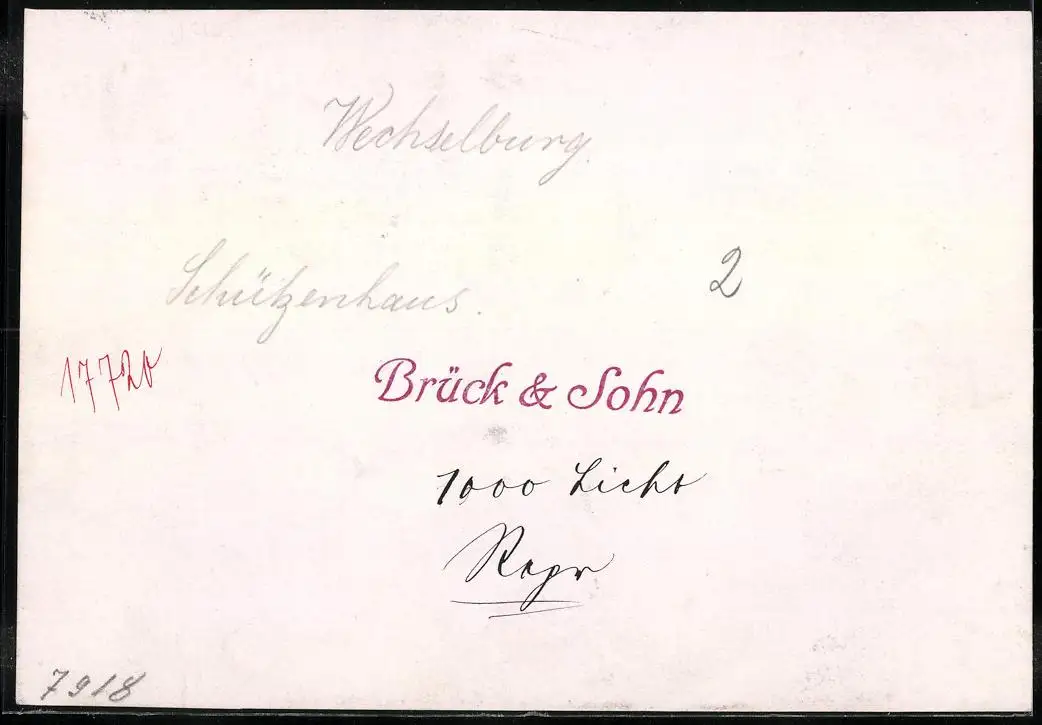 Wechselburg
Schützenhaus.
2
Brück & Sohn
1000 Licht
Repr
7918